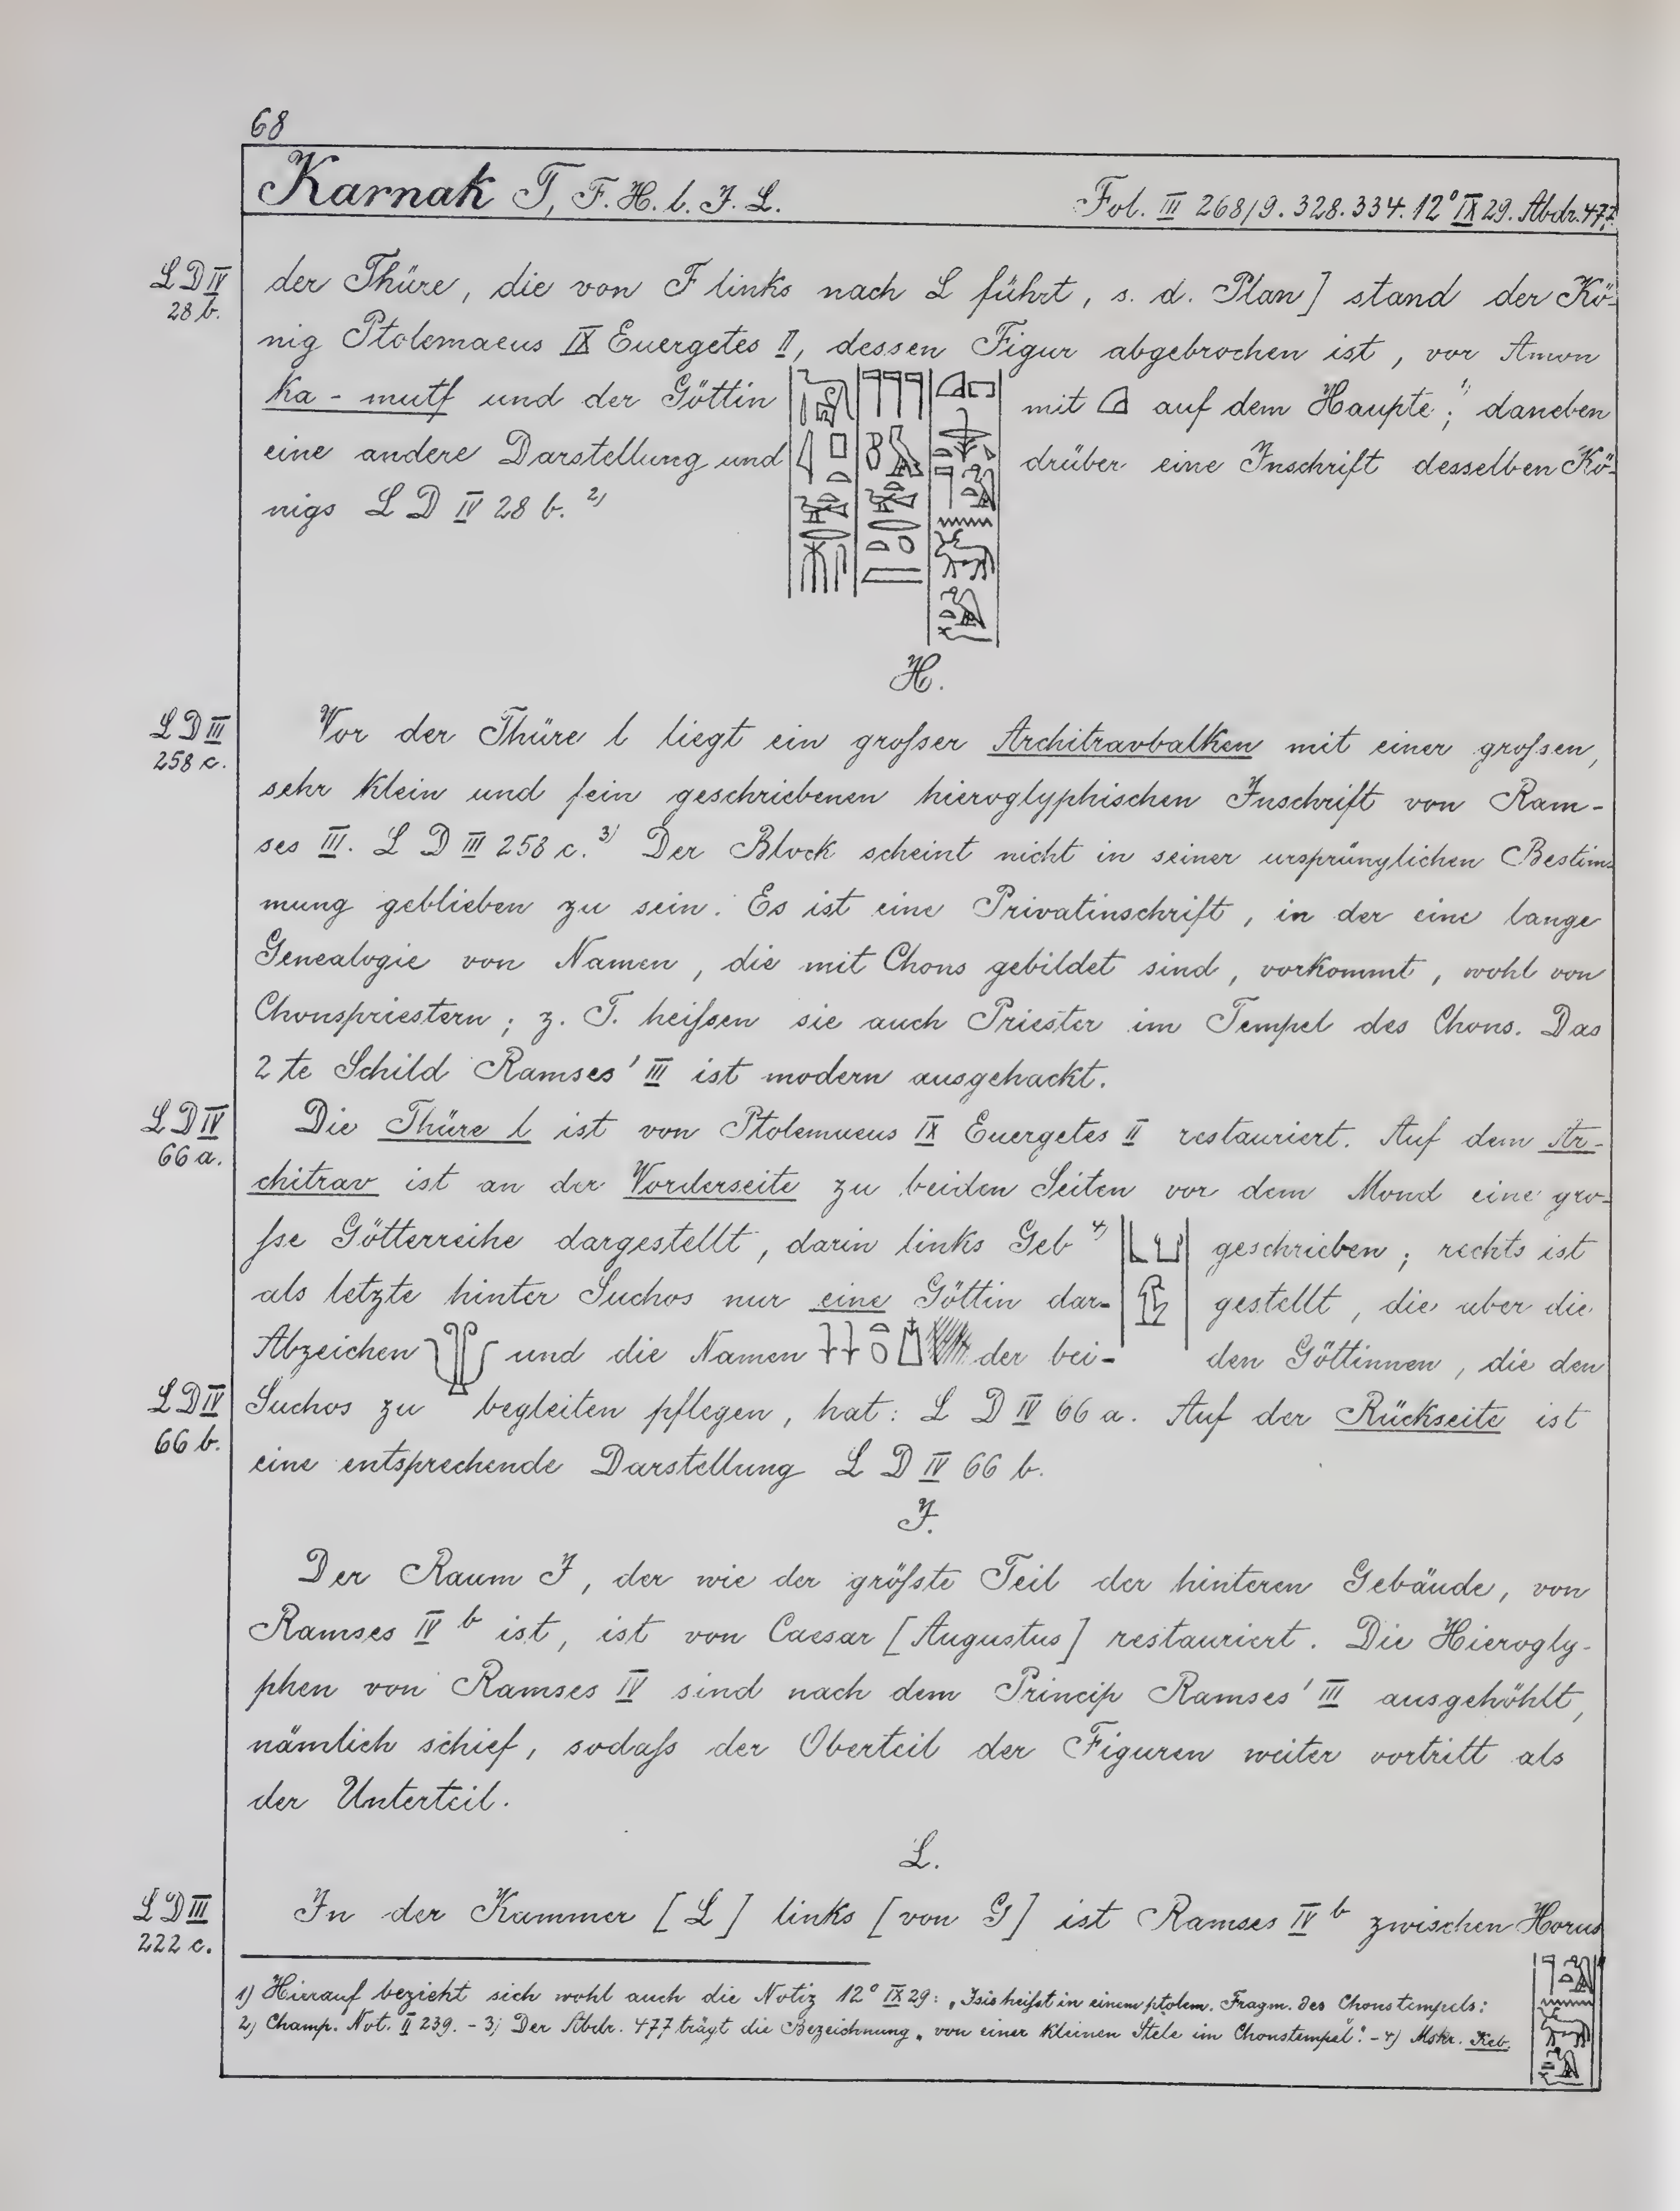 68
Karnak T, F. H. l. J. L. Fol. III 268/9. 328. 334. 12° IX 29. Abdr. 477.
LD IV 28 b.
der Thüre, die von F links nach L führt, s. d. Plan] stand der Kö-
nig Ptolemaeus IX Euergetes II, dessen Figur abgebrochen ist, vor Amon
Ka-mutf und der Göttin mit auf dem Haupte;¹⁾ daneben
eine andere Darstellung und drüber eine Inschrift desselben Kö-
nigs L D IV 28 b. ²⁾
H.
LD III 258 c.
Vor der Thüre l liegt ein großer Architravbalken mit einer großen,
sehr klein und fein geschriebenen hieroglyphischen Inschrift von Ram-
ses III. L D III 258 c.³⁾ Der Block scheint nicht in seiner ursprünglichen Bestim-
mung geblieben zu sein. Es ist eine Privatinschrift, in der eine lange
Genealogie von Namen, die mit Chons gebildet sind, vorkommt, wohl von
Chonspriestern; z. T. heißen sie auch Priester im Tempel des Chons. Das
2te Schild Ramses' III ist modern ausgehackt.
LD IV 66 a.
Die Thüre l ist von Ptolemaeus IX Euergetes II restauriert. Auf dem Ar-
chitrav ist an der Vorderseite zu beiden Seiten vor dem Mond eine gro-
ße Götterreihe dargestellt, darin links Geb ⁴⁾ geschrieben; rechts ist
als letzte hinter Suchos nur eine Göttin dar- gestellt, die aber die
Abzeichen und die Namen der bei- den Göttinnen, die den
LD IV 66 b.
Suchos zu begleiten pflegen, hat: L D IV 66 a. Auf der Rückseite ist
eine entsprechende Darstellung L D IV 66 b.
J.
Der Raum J, der wie der größte Teil der hinteren Gebäude, von
Ramses IV b ist, ist von Caesar [Augustus] restauriert. Die Hierogly-
phen von Ramses IV sind nach dem Princip Ramses' III ausgehöhlt,
nämlich schief, sodaß der Oberteil der Figuren weiter vortritt als
der Unterteil.
L.
LD III 222 c.
In der Kammer [L] links [von G] ist Ramses IV b zwischen Horus
1) Hierauf bezieht sich wohl auch die Notiz 12° IX 29: „Isis heißt in einem ptolem. Fragm. des Chonstempels:
2) Champ. Not. II 239. - 3) Der Abdr. 477 trägt die Bezeichnung „von einer kleinen Stele im Chonstempel". - 4) Mskr. Keb.